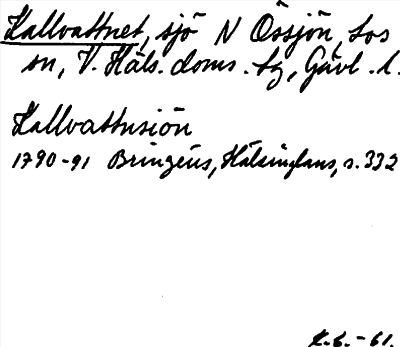 Kallvattnet, sjö N Össjön, Los
sn, V. Häls. doms. tg, Gävl. l.
Kallvattusiön
1790-91 Bringéus, Hälsinglaus, s. 332
K.G. -61.